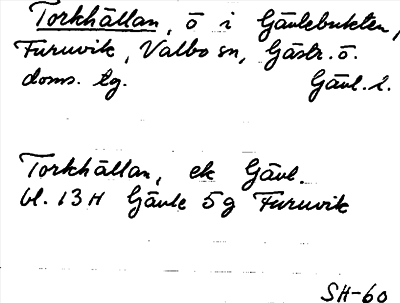 Torkhällan, ö i Gävlebukten,
Furuvik, Valbo sn, Gästr. ö.
doms. tg. Gävl. l.
Torkhällan, ek Gävl.
bl. 13H Gävle 5g Furuvik
SH-60